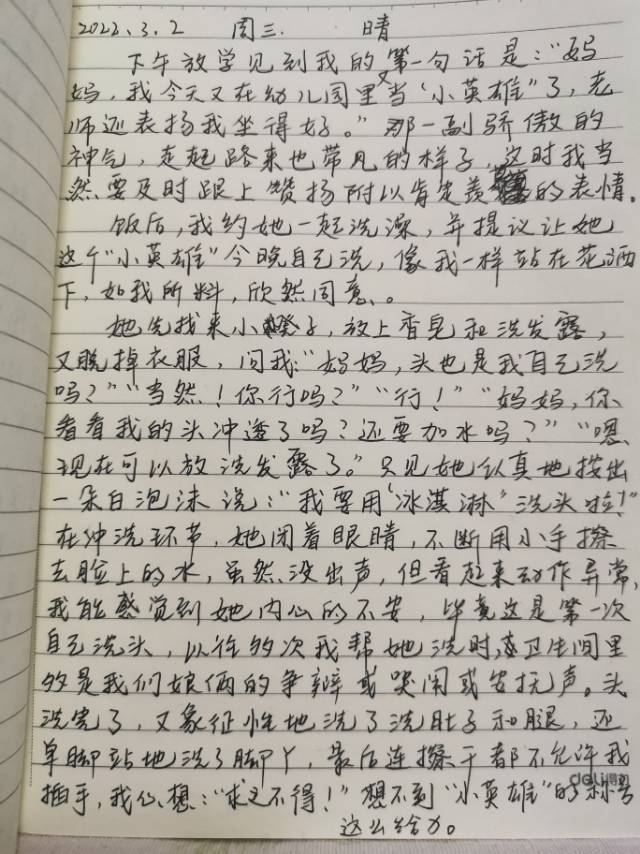 2022.3.2 周三. 晴
下午放学见到我的第一句话是:“妈
妈,我今天又在幼儿园里当“小英雄”了,老
师还表扬我坐得好。”那一副骄傲的
神气,走起路来也带风的样子,这时我当
然要及时跟上赞扬附以肯定羡的表情。
饭后,我约她一起洗澡,并提议让她
这个“小英雄”今晚自己洗,像我一样站在花洒
下,如我所料,欣然同意。
她先找来小凳子,放上香皂和洗发露,
又脱掉衣服,问我:“妈妈,头也是我自己洗
吗?”“当然!你行吗?”“行!”“妈妈,你
看看我的头冲透了吗?还要加水吗?”“嗯,
现在可以放洗发露了。”只见她认真地按出
一朵白泡沫说:“我要用‘冰淇淋’洗头啦!”
在冲洗环节,她闭着眼睛,不断用小手擦
去脸上的水,虽然没出声,但看起来动作异常,
我能感觉到她内心的不安,毕竟这是第一次
自己洗头,以往多次我帮她洗时,卫生间里
都是我们娘俩的争辩或哭闹或安抚声。头
洗完了,又象征性地洗了洗肚子和腿,还
单脚站地洗了脚丫,最后连擦干都不允许我
插手,我心想:“求之不得!”想不到“小英雄”的称号
这么给力。
deli